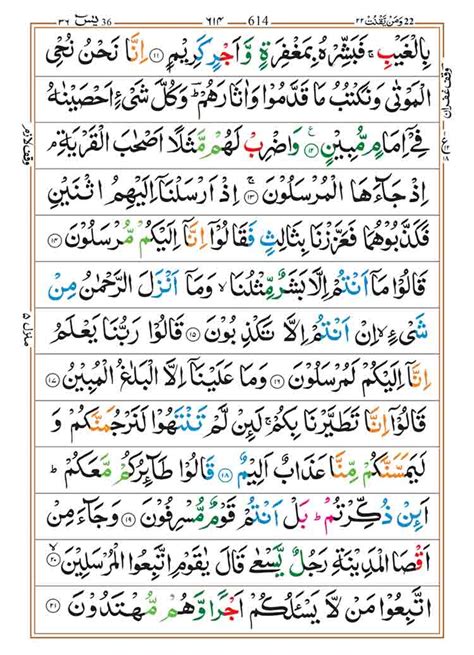 يٰسٓ 36 ٣٦ ٦١٤ 614 وَمَنْ يَّقْنُتْ 22 ٢٢
بِالْغَيْبِ ۚ فَبَشِّرْهُ بِمَغْفِرَةٍ وَّاَجْرٍ كَرِيْمٍ ۝۱۱ اِنَّا نَحْنُ نُحْيِ
الْمَوْتٰى وَنَكْتُبُ مَا قَدَّمُوْا وَاٰثَارَهُمْ ؕ وَكُلَّ شَیْءٍ اَحْصَيْنٰهُ
فِيْٓ اِمَامٍ مُّبِيْنٍ ۝۱۲ وَاضْرِبْ لَهُمْ مَّثَلًا اَصْحٰبَ الْقَرْيَةِ ۘ
اِذْ جَآءَهَا الْمُرْسَلُوْنَ ۝۱۳ اِذْ اَرْسَلْنَاۤ اِلَيْهِمُ اثْنَيْنِ
فَكَذَّبُوْهُمَا فَعَزَّزْنَا بِثَالِثٍ فَقَالُوْۤا اِنَّاۤ اِلَيْكُمْ مُّرْسَلُوْنَ ۝۱۴
قَالُوْا مَاۤ اَنْتُمْ اِلَّا بَشَرٌ مِّثْلُنَا ۙ وَمَاۤ اَنْزَلَ الرَّحْمٰنُ مِنْ
شَیْءٍ ۙ اِنْ اَنْتُمْ اِلَّا تَكْذِبُوْنَ ۝۱۵ قَالُوْا رَبُّنَا يَعْلَمُ
اِنَّاۤ اِلَيْكُمْ لَمُرْسَلُوْنَ ۝۱۶ وَمَا عَلَيْنَاۤ اِلَّا الْبَلٰغُ الْمُبِيْنُ ۝۱۷
قَالُوْۤا اِنَّا تَطَيَّرْنَا بِكُمْ ۚ لَئِنْ لَّمْ تَنْتَهُوْا لَنَرْجُمَنَّكُمْ وَ
لَيَمَسَّنَّكُمْ مِّنَّا عَذَابٌ اَلِيْمٌ ۝۱۸ قَالُوْا طَآئِرُكُمْ مَّعَكُمْ ؕ
اَئِنْ ذُكِّرْتُمْ ؕ بَلْ اَنْتُمْ قَوْمٌ مُّسْرِفُوْنَ ۝۱۹ وَجَآءَ مِنْ
اَقْصَا الْمَدِيْنَةِ رَجُلٌ يَّسْعٰى قَالَ يٰقَوْمِ اتَّبِعُوا الْمُرْسَلِيْنَ ۝۲۰
اتَّبِعُوْا مَنْ لَّا يَسْـَٔلُكُمْ اَجْرًا وَّهُمْ مُّهْتَدُوْنَ ۝۲۱
وقف غفران
وقف لازم
منزل ۵